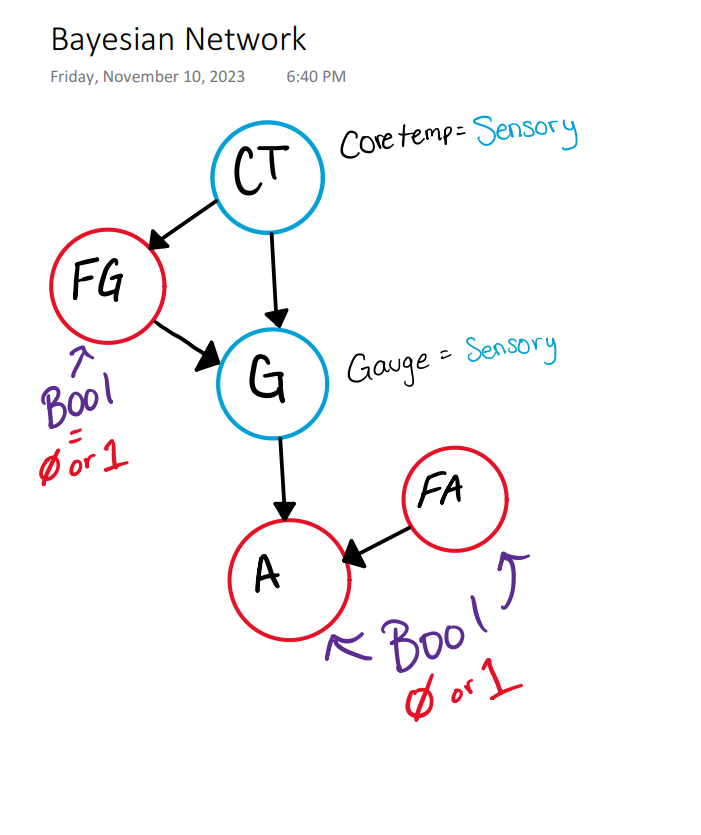 Bayesian Network
Friday, November 10, 2023 6:40 PM
CT
Core temp = Sensory
FG
Bool
=
0 or 1
G
Gauge = Sensory
FA
A
Bool
0 or 1